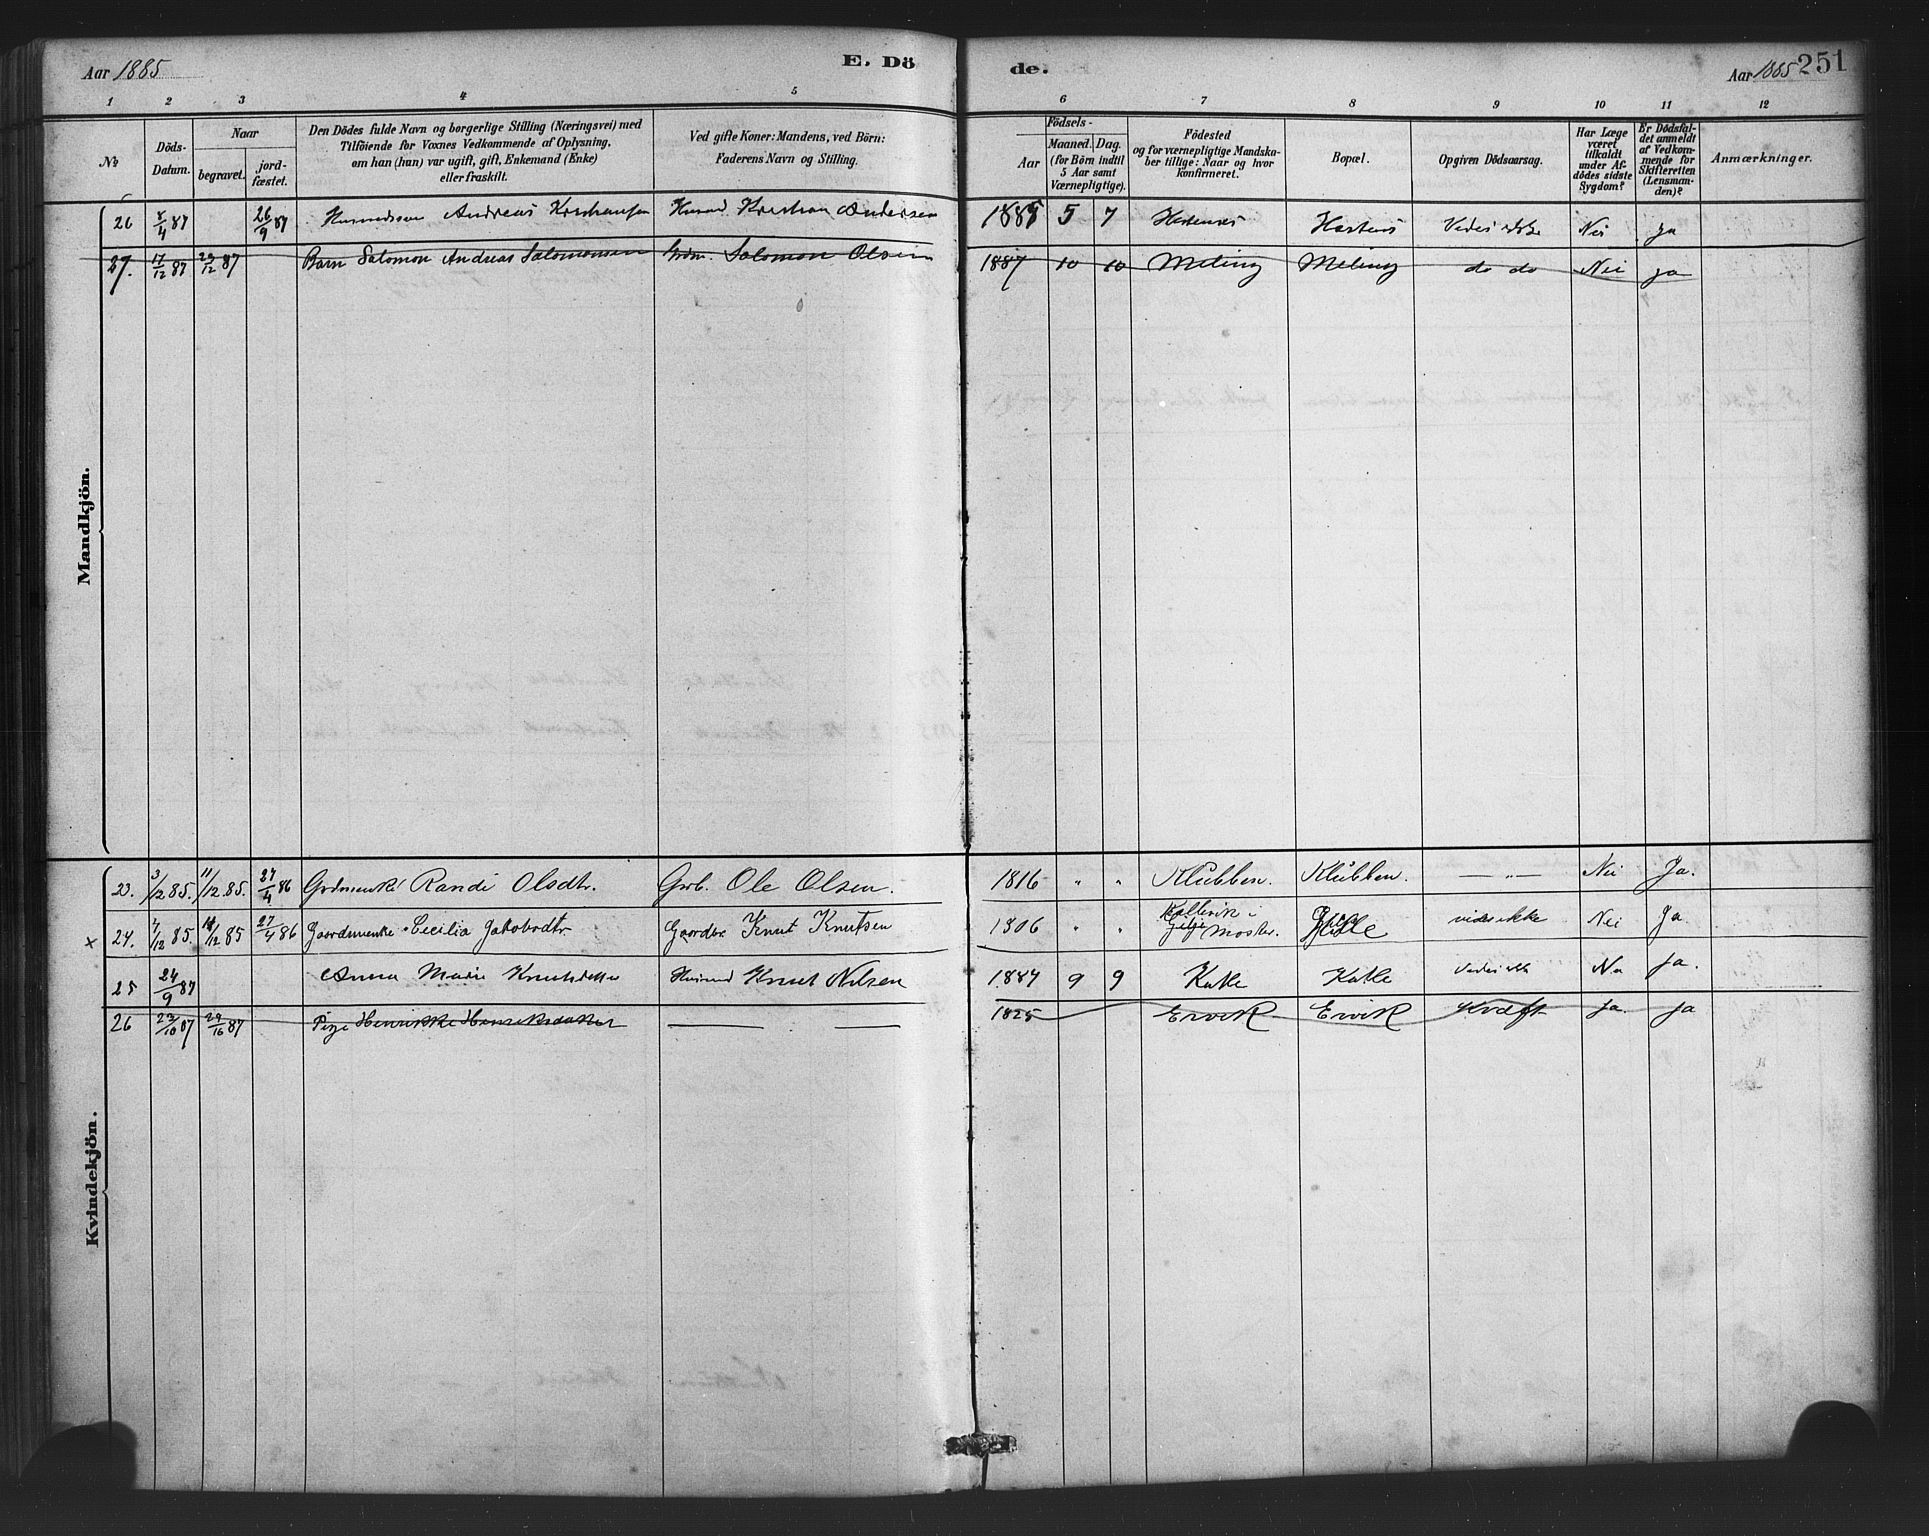 Aar 1885
E. Dö
de.
Aar 1885
251
1 2 3 4 5 6 7 8 9 10 11 12
No
Döds-Datum.
Naar
begravet.
jord-fæstet.
Den Dödes fulde Navn og borgerlige Stilling (Næringsvei) med
Tilföiende for Voxnes Vedkommende af Oplysning,
om han (hun) var ugift, gift, Enkemand (Enke)
eller fraskilt.
Ved gifte Koner: Mandens, ved Börn:
Faderens Navn og Stilling.
Födsels-
Aar
Maaned. Dag.
(for Börn indtil
5 Aar samt
Værnepligtige).
Födested
og for værnepligtige Mandska-
ber tillige: Naar og hvor
konfirmeret.
Bopæl.
Opgiven Dödsaarsag.
Har Læge
været
tilkaldt
under Af-
dödes sidste
Sygdom?
Er Dödsfal-
det anmeldt
af Vedkom-
mende for
Skifteretten
(Lensman-
den)?
Anmærkninger.
Mandkjön.
26 8/4 87 26/9 87 Husmandssøn Andreas Kristiansen Husmd. Kristian Andersen 1885 5 7 Vides ikke Nei Ja
27. 17/12 87 29/12 87 Barn Salomon Andreas Salomonsen Grdm. Salomon Olsen 1887 10 10 Meling Meling do do Nei ja
Kvindekjön.
23. 3/12 85. 11/12 85. 27/4 86 Grdmenke Randi Olsdtr. Grb. Ole Olsen. 1816 " " Klubben. Klubben. — " — Nei Ja.
× 24. 7/12 85. 14/12 85 27/4 86 Gaardmenke Cecilia Jakobsdtr. Gaardbr. Knut Knutsen 1806 " " i Moster. vides ikke Nei Ja
25 24/9 87 Anna Marie Knutsdatter Husmd Knut Nilsen 1887 9 9 Katle Katle Vides ikke Nei Ja.
26 23/10 87 29/10 87 Pige Henrikke Henriksdatter — — 1825 Ervik Ervik Kræft Ja. Ja